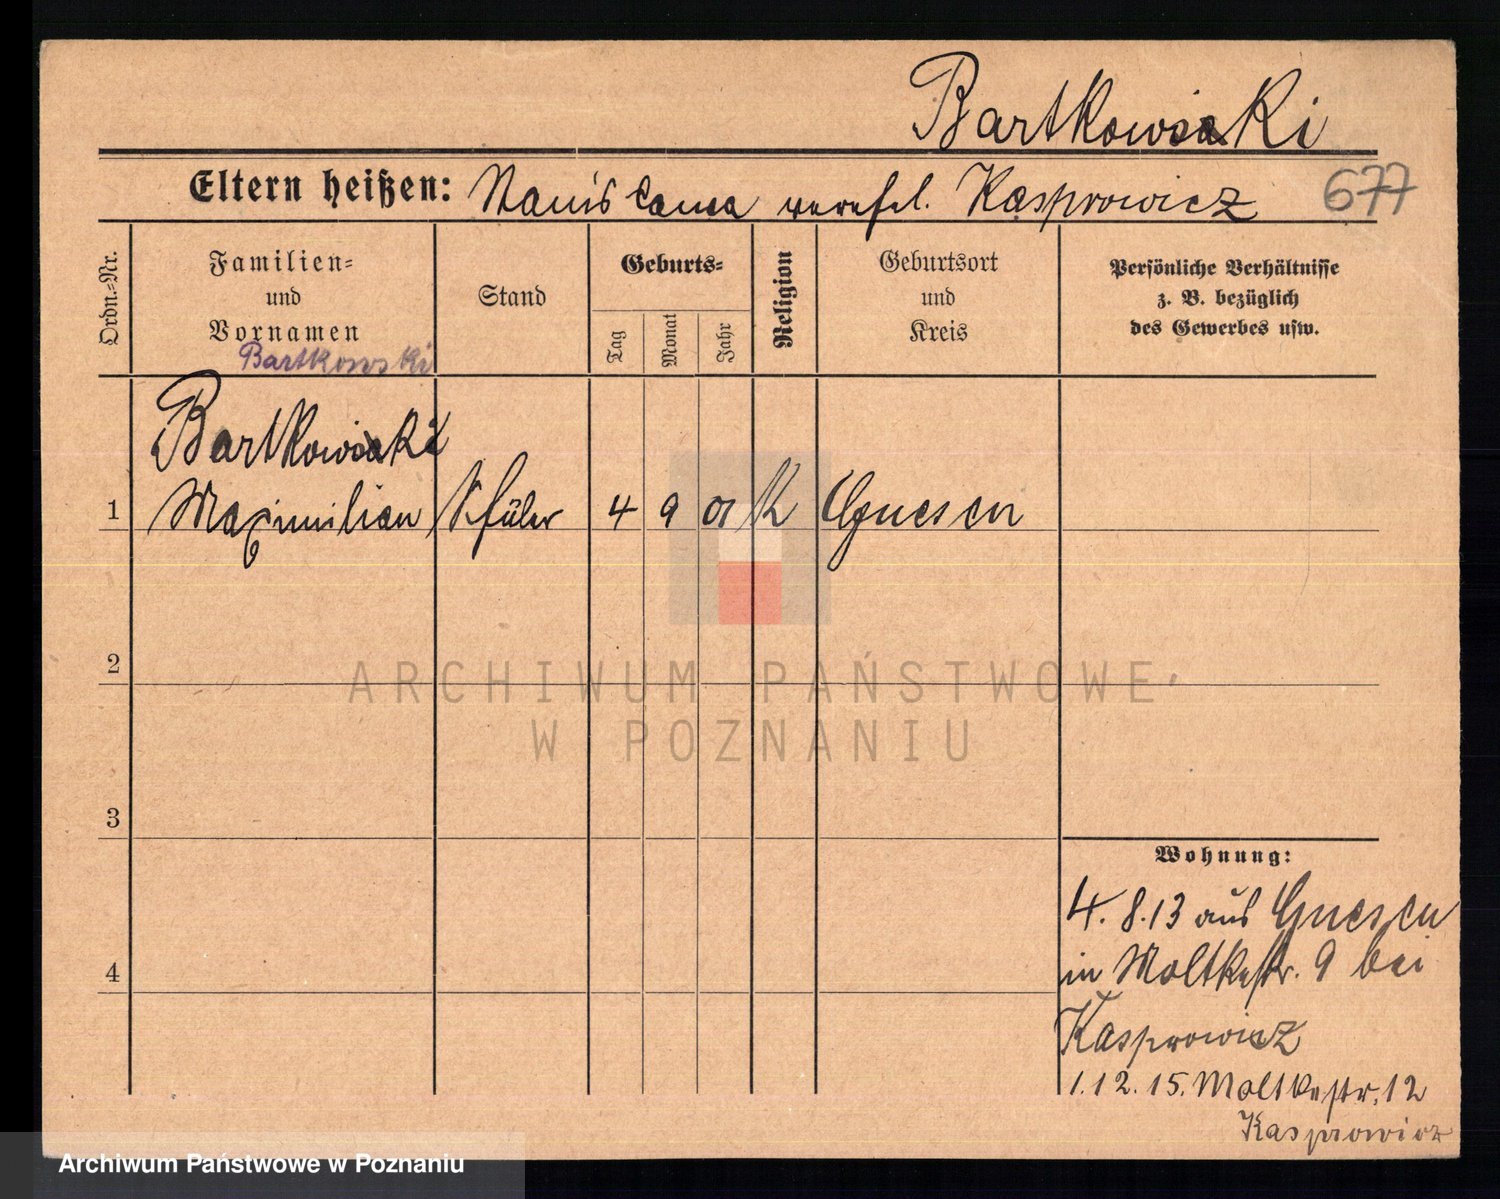 Bartkowiski
Eltern heißen: Stanislawa verehel. Kasprowicz 677
Ordn.-Nr.
Familien-
und
Vornamen
Bartkowski
Stand
Geburts-
Tag
Monat
Jahr
Religion
Geburtsort
und
Kreis
Persönliche Verhältnisse
z. B. bezüglich
des Gewerbes usw.
Bartkowiski
1 Maximilian Schüler 4 9 01 K Gnesen
2
3
4
ARCHIWUM PAŃSTWOWE
W POZNANIU
Wohnung:
4. 8. 13 aus Gnesen
in Moltkestr. 9 bei
Kasprowicz
1. 12. 15. Moltkestr. 12
Kasprowicz
Archiwum Państwowe w Poznaniu